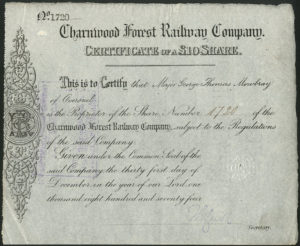 No. 1720
Charnwood Forest Railway Company.
CERTIFICATE OF A £10 SHARE.
This is to Certify that Major George Thomas Mowbray
of
is the Proprietor of the Share Number 1720 of the
Charnwood Forest Railway Company, subject to the Regulations
of the said Company.
Given under the Common Seal of the
said Company the thirty first day of
December in the year of our Lord, one
thousand eight hundred and seventy four
Secretary.